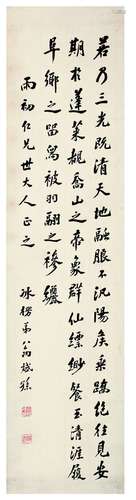 若乃三光既清天地融朖不汎陽侯乘蹻絕往見安
期於蓬萊覿喬山之帝象群仙縹緲餐玉清涯履
阜鄉之留舄被羽翮之襂纚
雨初仁兄世大人正之
冰楞弟翁斌孫